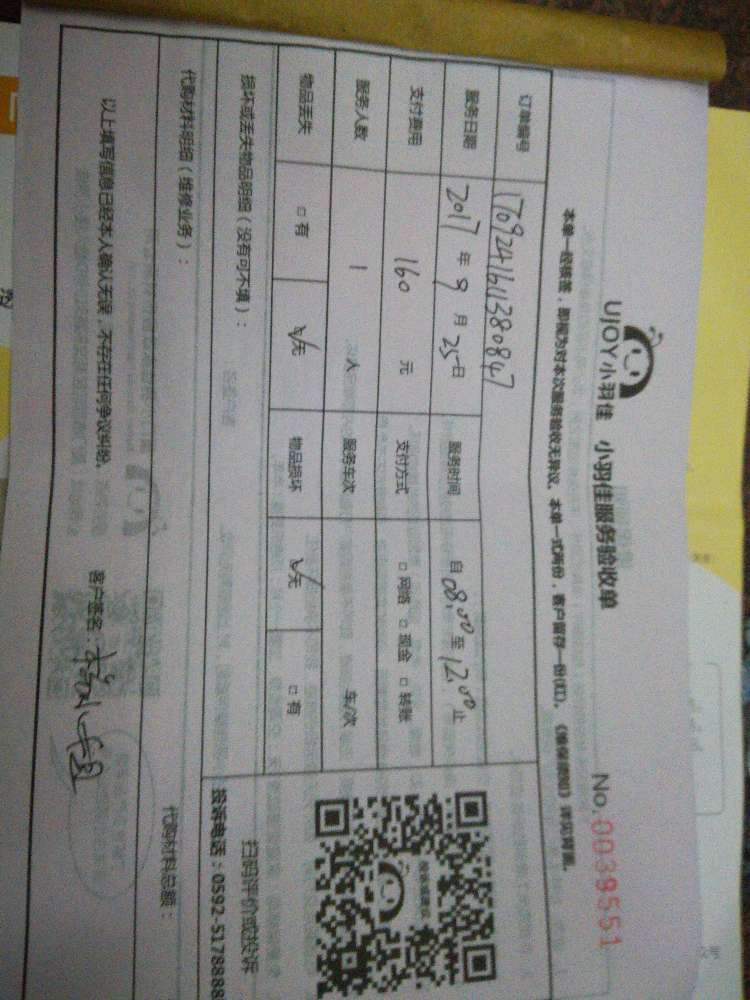 UJOY小羽佳 小羽佳服务验收单
No.0039551
本单一经核签，即视为对本次服务验收无异议。本单一式两份，客户留存一份(红)。
订单编号 1709241611380847
服务日期 2017年9月25日 服务时间 自08:00至12:00止
支付费用 160元 支付方式 □网络 □现金 □转账
服务人数 1人 服务车次 车/次
物品丢失 □有 ☑无 物品损坏 ☑无 □有
损坏或丢失物品明细（没有可不填）：
扫码评价或投诉
投诉电话：0592-5178888
代购材料明细（维修业务）：
代购材料总额：
以上填写信息已经本人确认无误，不存在任何争议纠纷。
客户签名：